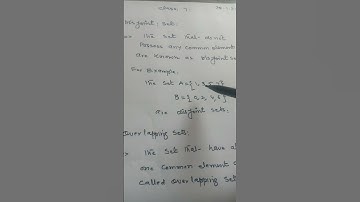 Class 7.
Disjoint Set:
The Set that do not
Possess any common elements
are known as disjoint se
For Example.
The Set A = { 1, 3, 5
B = { 0, 2, 4, 6 }
are disjoint sets.
Overlapping Sets:
The Set that- have a
one common element
called overlapping Set